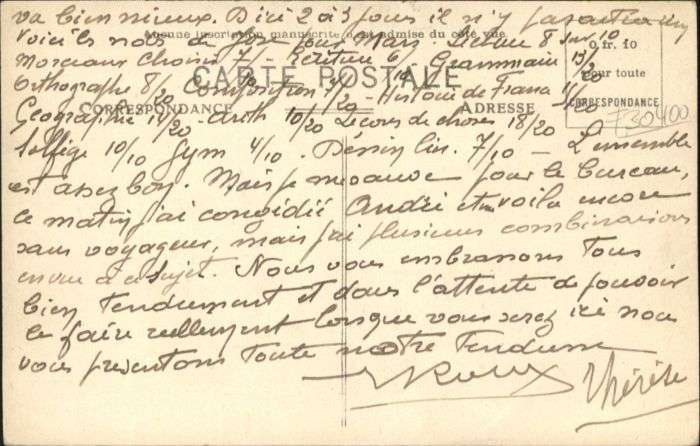 va bien mieux. D'ici 2 à 3 jours il n'y
Aucune inscription manuscrite n'est admise du côté vue
Voici les notes de José pour Mars. Lecture 8 sur 10
0 fr. 10
Morceaux Choisis 7/ - Ecriture 6/10 Grammaire 13/20
pour toute
CARTE POSTALE
Orthographe 8/20 Composition /20 - Histoire de France 11/20
CORRESPONDANCE
ADRESSE
CORRESPONDANCE
Géographie 14/20 - Arith 10/20 Leçons de choses 18/20
730400
Solfège 10/10 Gym 4/10. Dessin lin. 7/10 - L'ensemble
est assez bon. Mais je me sauve pour le bureau,
ce matin j'ai congédié André et me voilà encore
sans voyageur, mais j'ai plusieurs combinaisons
en vue à ce sujet. Nous vous embrassons tous
bien tendrement et dans l'attente de pouvoir
le faire réellement lorsque vous serez ici nous
vous présentons toute notre tendresse
Thérèse